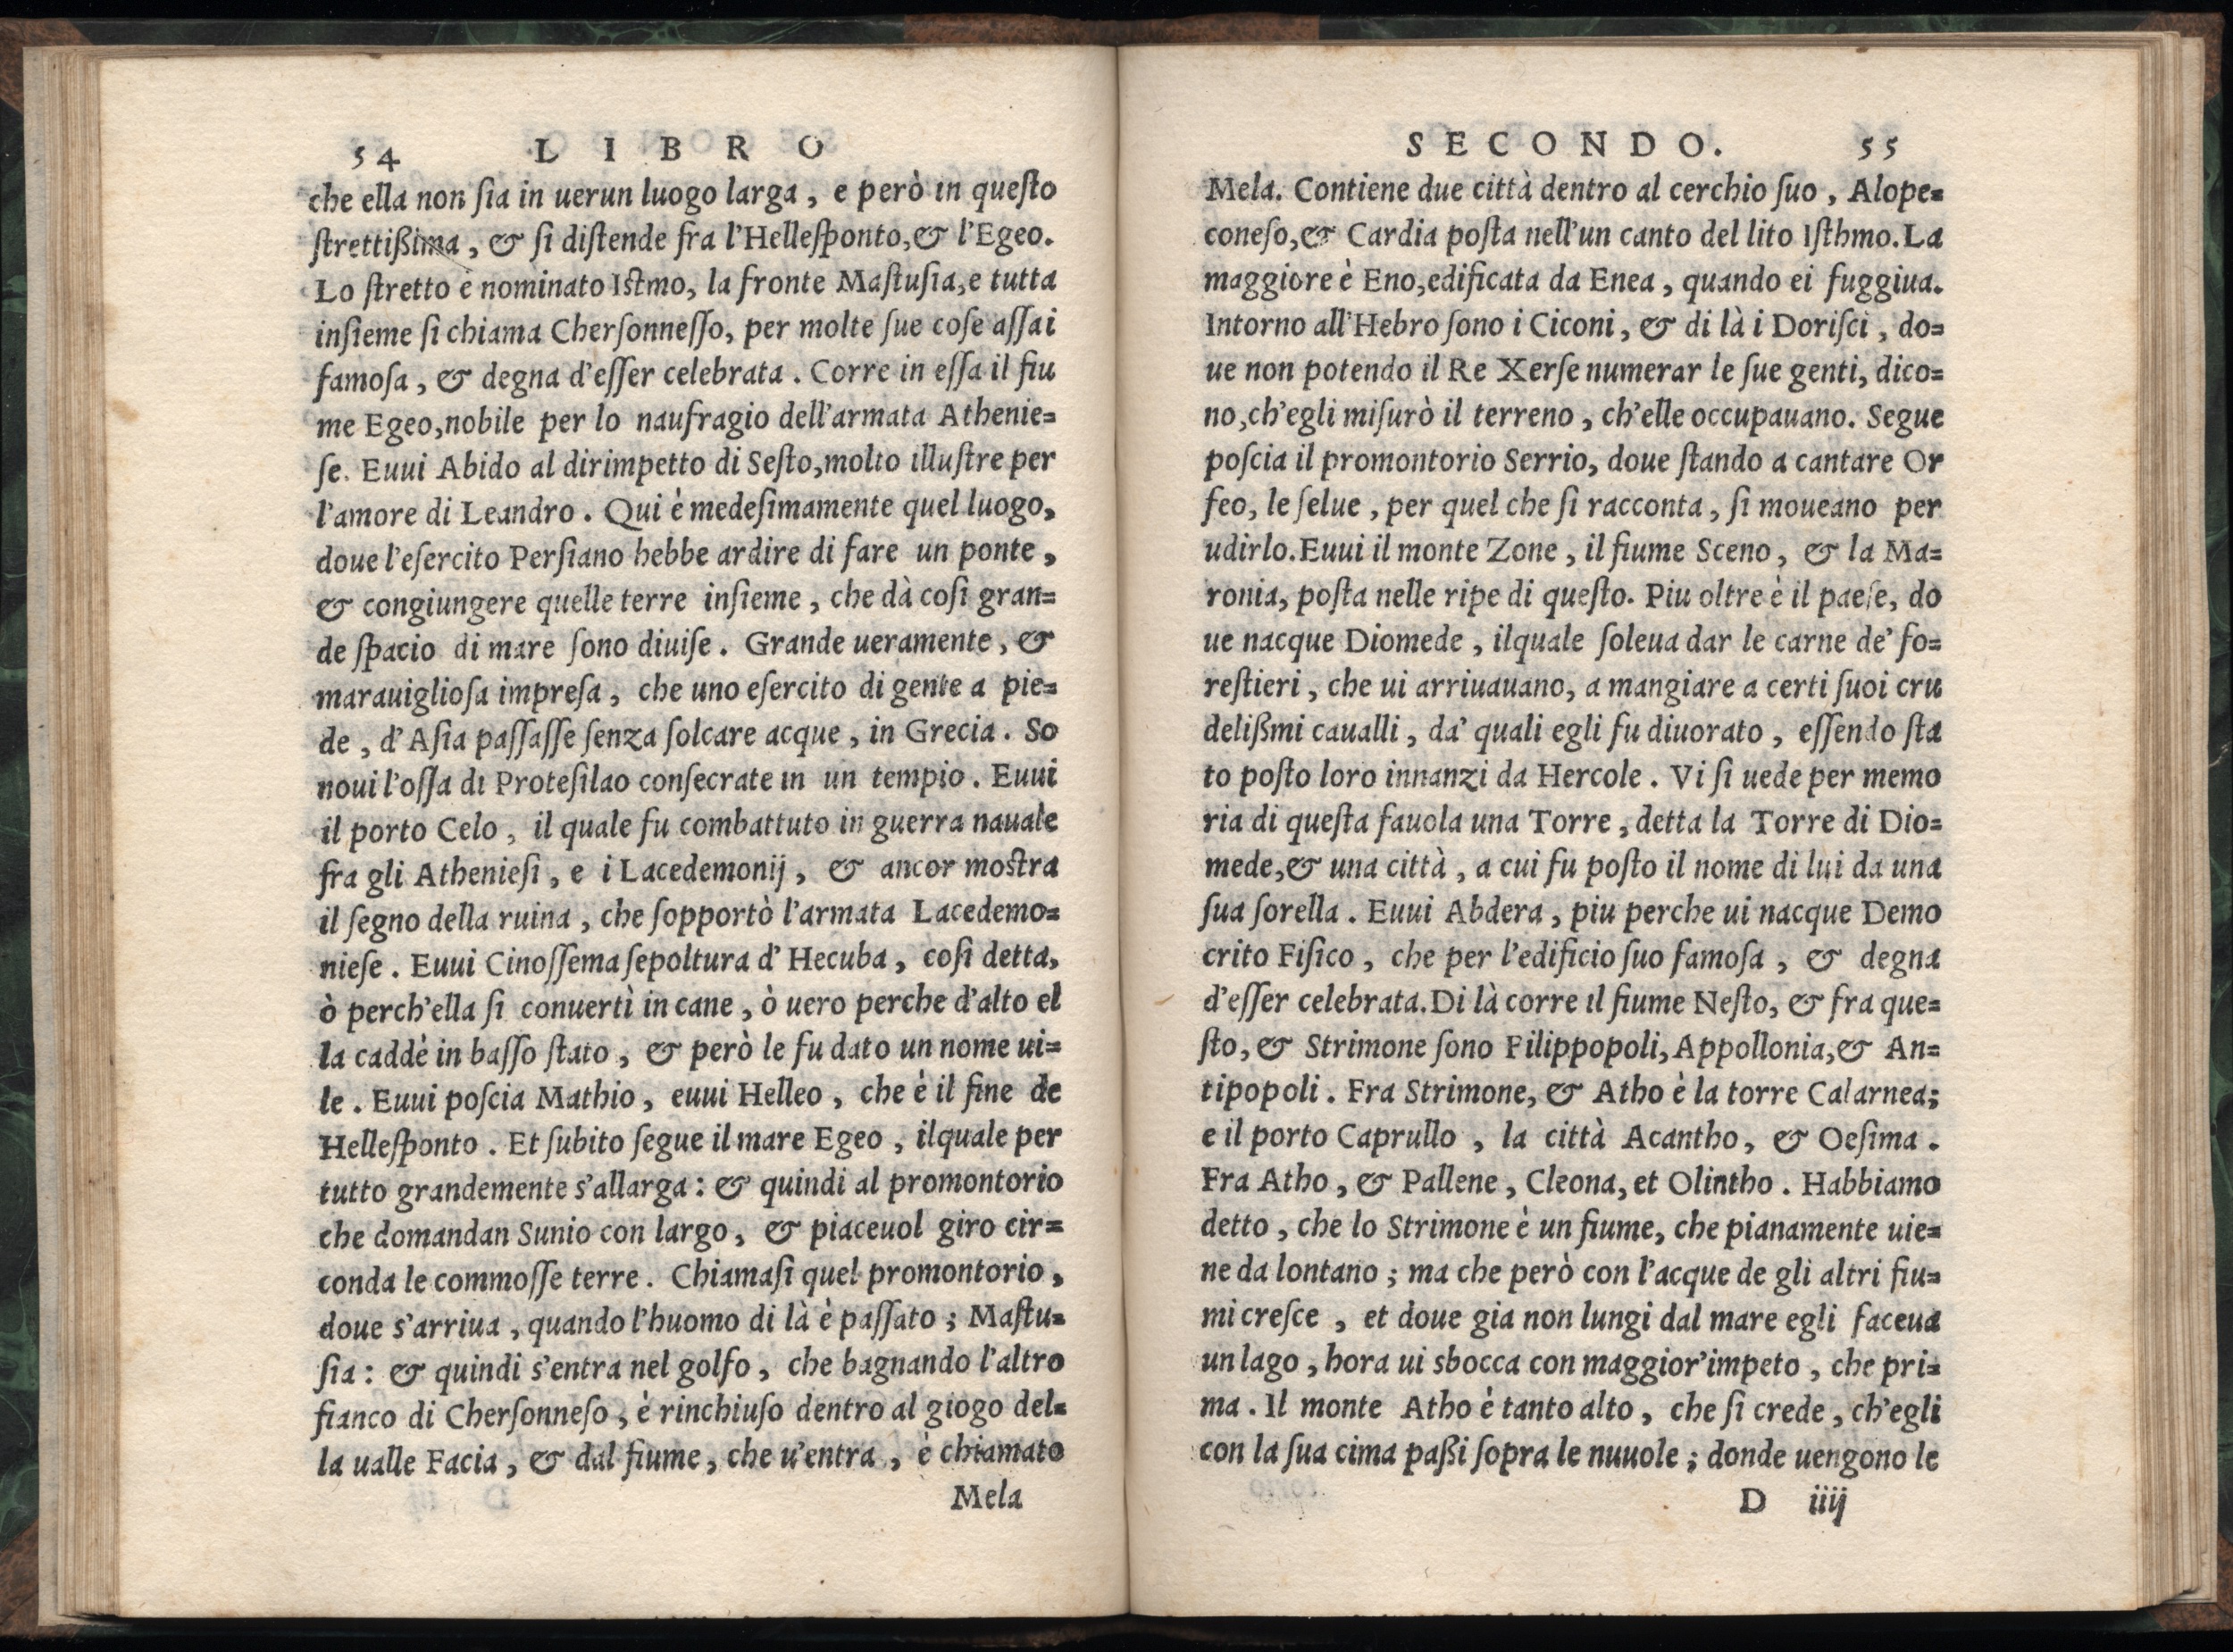 54 LIBRO
che ella non ſia in uerun luogo larga, e però in queſto
ſtrettißima, & ſi diſtende fra l'Helleſponto,& l'Egeo.
Lo ſtretto è nominato Iſtmo, la fronte Maſtuſia,e tutta
inſieme ſi chiama Cherſonneſſo, per molte ſue coſe aſſai
famoſa, & degna d'eſſer celebrata. Corre in eſſa il fiu
me Egeo,nobile per lo naufragio dell'armata Athenie=
ſe. Euui Abido al dirimpetto di Seſto,molto illuſtre per
l'amore di Leandro. Qui è medeſimamente quel luogo,
doue l'eſercito Perſiano hebbe ardire di fare un ponte,
& congiungere quelle terre inſieme, che dà coſi gran=
de ſpacio di mare ſono diuiſe. Grande ueramente, &
marauiglioſa impreſa, che uno eſercito di gente a pie=
de, d'Aſia paſſaſſe ſenza ſolcare acque, in Grecia. So
noui l'oſſa di Proteſilao conſecrate in un tempio. Euui
il porto Celo, il quale fu combattuto in guerra nauale
fra gli Athenieſi, e i Lacedemonij, & ancor moſtra
il ſegno della ruina, che ſopportò l'armata Lacedemo=
nieſe. Euui Cinoſſema ſepoltura d'Hecuba, coſi detta,
ò perch'ella ſi conuertì in cane, ò uero perche d'alto el
la caddè in baſſo ſtato, & però le fu dato un nome ui=
le. Euui poſcia Mathio, euui Helleo, che è il fine de
Helleſponto. Et ſubito ſegue il mare Egeo, ilquale per
tutto grandemente s'allarga: & quindi al promontorio
che domandan Sunio con largo, & piaceuol giro cir=
conda le commoſſe terre. Chiamaſi quel promontorio,
doue s'arriua, quando l'huomo di là è paſſato; Maſtu=
ſia: & quindi s'entra nel golfo, che bagnando l'altro
fianco di Cherſonneſo, è rinchiuſo dentro al giogo del=
la ualle Facia, & dal fiume, che u'entra, è chiamato
Mela
SECONDO. 55
Mela. Contiene due città dentro al cerchio ſuo, Alope=
coneſo,& Cardia poſta nell'un canto del lito Iſthmo.La
maggiore è Eno,edificata da Enea, quando ei fuggiua.
Intorno all'Hebro ſono i Ciconi, & di là i Doriſci, do=
ue non potendo il Re Xerſe numerar le ſue genti, dico=
no,ch'egli miſurò il terreno, ch'elle occupauano. Segue
poſcia il promontorio Serrio, doue ſtando a cantare Or
feo, le ſelue, per quel che ſi racconta, ſi moueano per
udirlo.Euui il monte Zone, il fiume Sceno, & la Ma=
ronia, poſta nelle ripe di queſto. Piu oltre è il paeſe, do
ue nacque Diomede, ilquale ſoleua dar le carne de' fo=
reſtieri, che ui arriuauano, a mangiare a certi ſuoi cru
delißmi caualli, da' quali egli fu diuorato, eſſendo ſta
to poſto loro innanzi da Hercole. Vi ſi uede per memo
ria di queſta fauola una Torre, detta la Torre di Dio=
mede,& una città, a cui fu poſto il nome di lui da una
ſua ſorella. Euui Abdera, piu perche ui nacque Demo
crito Fiſico, che per l'edificio ſuo famoſa, & degna
d'eſſer celebrata.Di là corre il fiume Neſto, & fra que=
ſto, & Strimone ſono Filippopoli,Appollonia,& An=
tipopoli. Fra Strimone, & Atho è la torre Calarnea;
e il porto Caprullo, la città Acantho, & Oeſima.
Fra Atho, & Pallene, Cleona, et Olintho. Habbiamo
detto, che lo Strimone è un fiume, che pianamente uie=
ne da lontano; ma che però con l'acque de gli altri fiu=
mi creſce, et doue gia non lungi dal mare egli faceua
un lago, hora ui sbocca con maggior'impeto, che pri=
ma. Il monte Atho è tanto alto, che ſi crede, ch'egli
con la ſua cima paßi ſopra le nuuole; donde uengono le
D iiij